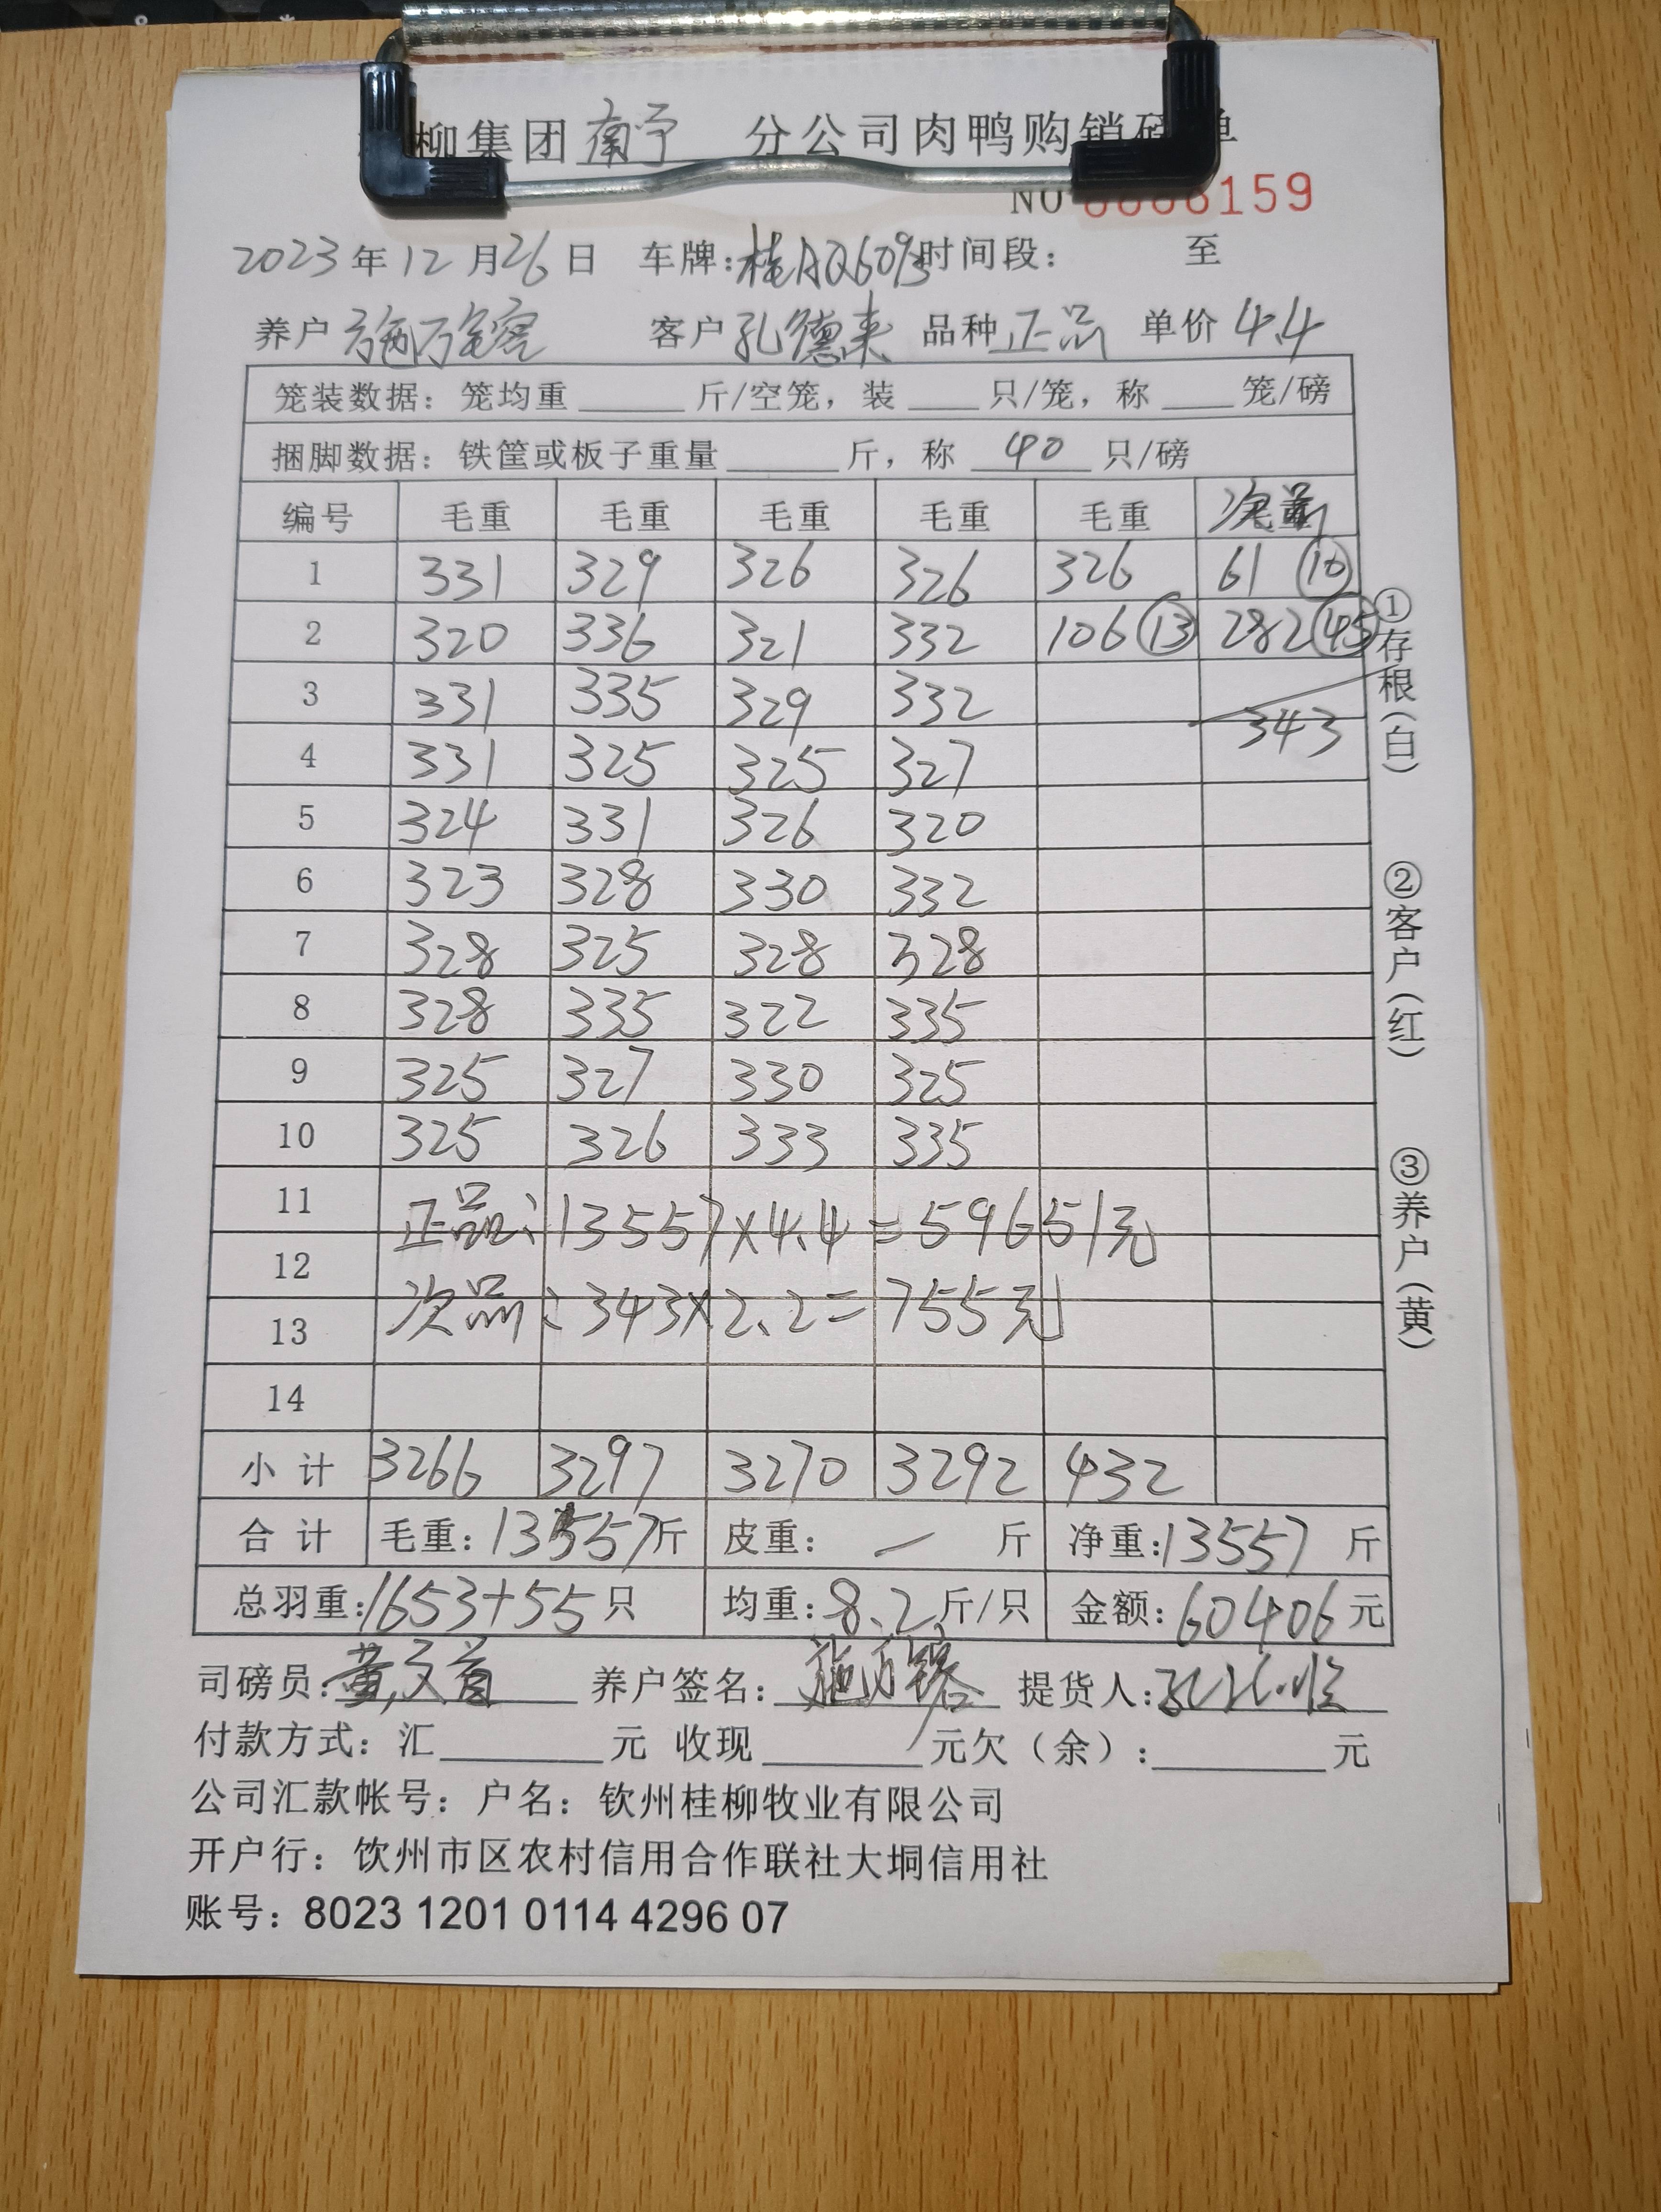 柳集团南宁 分公司肉鸭购销磅单
NO 159
2023年12月26日 车牌:桂AQ6093 时间段: 至
养户 客户孔德来 品种正品 单价4.4
笼装数据: 笼均重 斤/空笼, 装 只/笼, 称 笼/磅
捆脚数据: 铁筐或板子重量 斤, 称 40 只/磅
编号 毛重 毛重 毛重 毛重 毛重 次品
1 331 329 326 326 326 61 ⑩
2 320 336 321 332 106 ⑬ 282 ㊺
3 331 335 329 332
343
4 331 325 325 327
5 324 331 326 320
6 323 328 330 332
7 328 325 328 328
8 328 335 322 335
9 325 327 330 325
10 325 326 333 335
11 正品: 13557×4.4=59651元
12
13 次品: 343×2.2=755元
14
小计 3266 3297 3270 3292 432
合计 毛重: 13557斤 皮重: — 斤 净重:13557 斤
总羽重:1653+55只 均重:8.2斤/只 金额:60406元
司磅员: 养户签名: 提货人:
付款方式: 汇 元 收现 元欠(余): 元
公司汇款帐号: 户名: 钦州桂柳牧业有限公司
开户行: 饮州市区农村信用合作联社大垌信用社
账号: 8023 1201 0114 4296 07
①存根(白)
②客户(红)
③养户(黄)